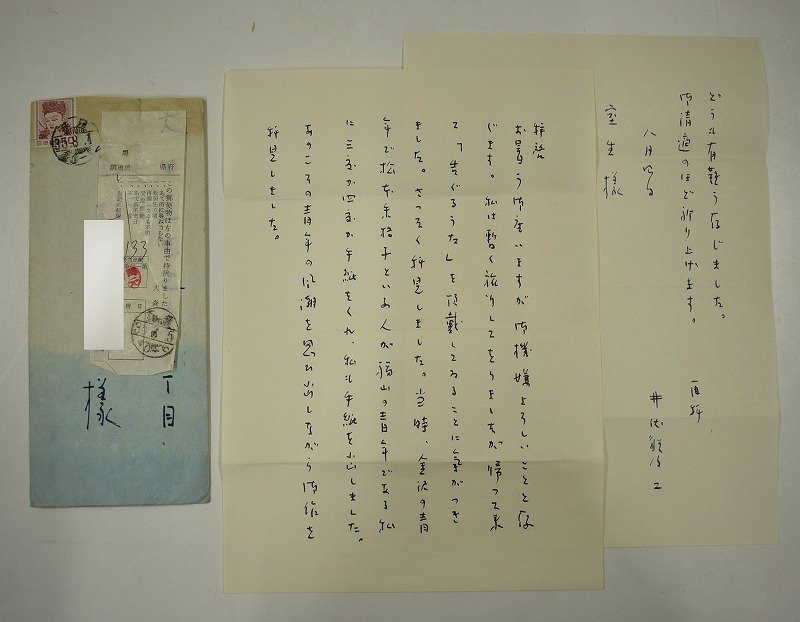 拝啓
お暑う御座いますが御機嫌よろしいことと存
じます。私は暫く旅行してをりましたが帰つて来
て「告ぐるうた」を頂戴してゐることに気がつき
ました。さつそく拝見しました。当時、金沢の青
年で松本といふ人が福山の青年である私
に三度か四度か手紙をくれ、私も手紙を出しました。
あのころの青年の風潮を思ひ出しながら御作を
拝見しました。
どうも有難う存じました。
御清適のほど祈り上げます。
再拝
八月
井伏鱒二
室生様
丁目
様
133